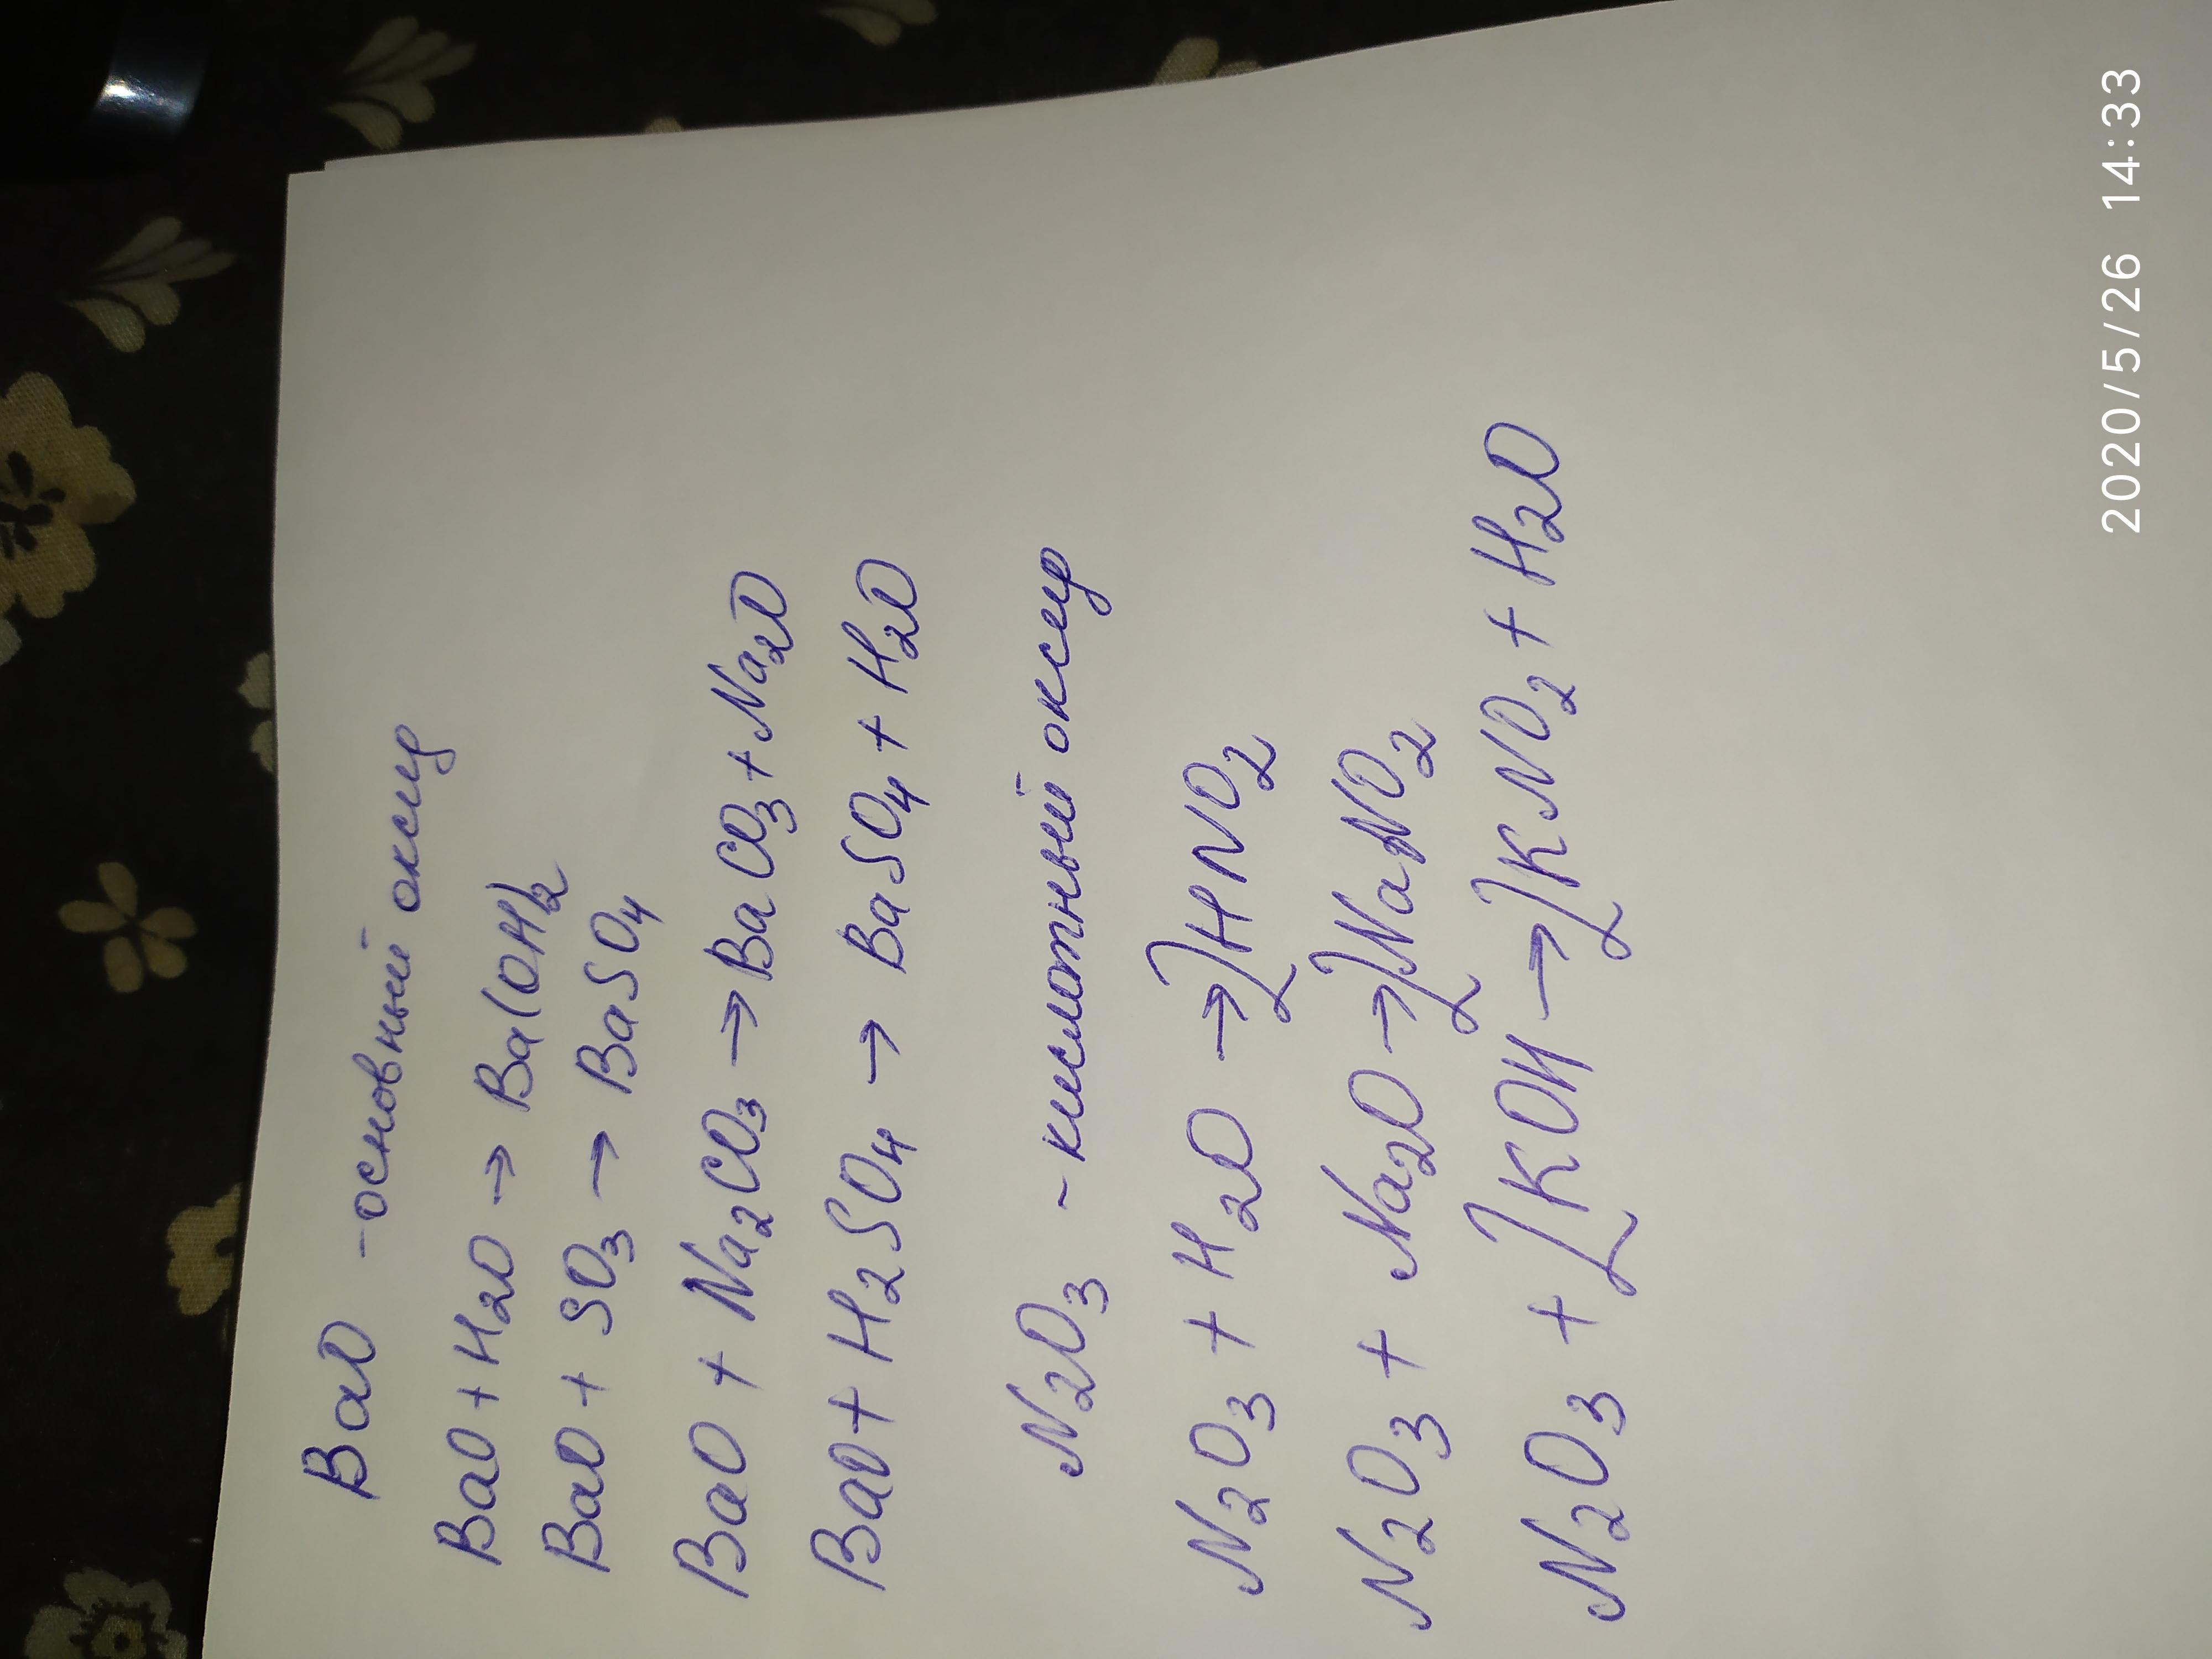 BaO -основный оксид
BaO + H2O → Ba(OH)2
BaO + SO3 → BaSO4
BaO + Na2CO3 → BaCO3 + Na2O
BaO + H2SO4 → BaSO4 + H2O
N2O3 - кислотный оксид
N2O3 + H2O → 2HNO2
N2O3 + Na2O → 2NaNO2
N2O3 + 2KOH → 2KNO2 + H2O
2020/5/26 14:33